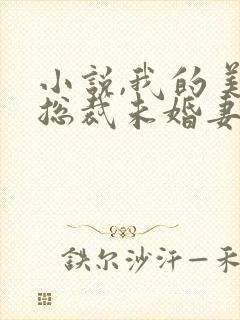 小説,我的美
總裁未婚妻
鉄尔沙汗—禾